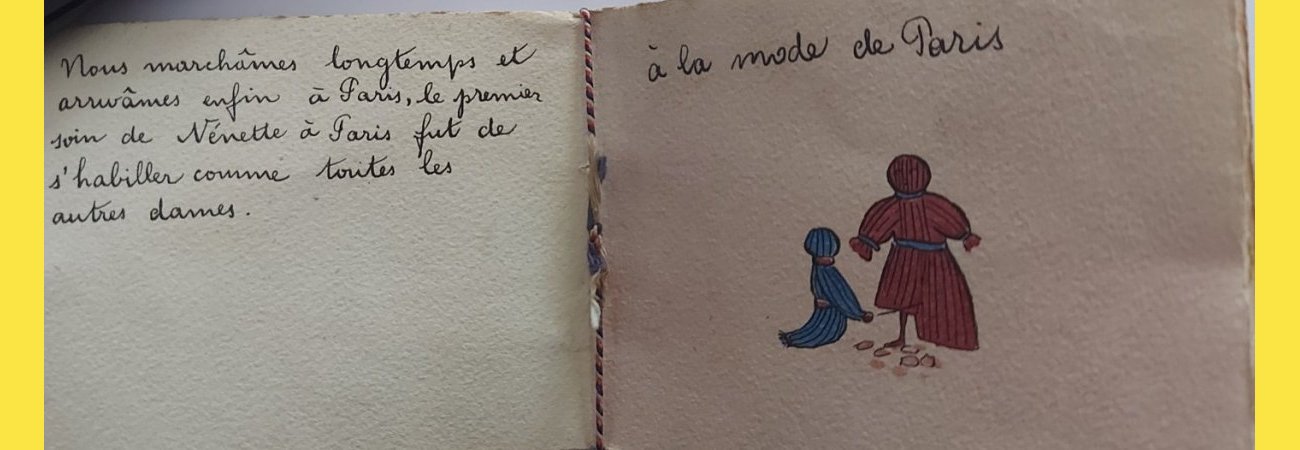 Nous marchâmes longtemps et
arrivâmes enfin à Paris, le premier
soin de Nénette à Paris fut de
s'habiller comme toutes les
autres dames.
à la mode de Paris